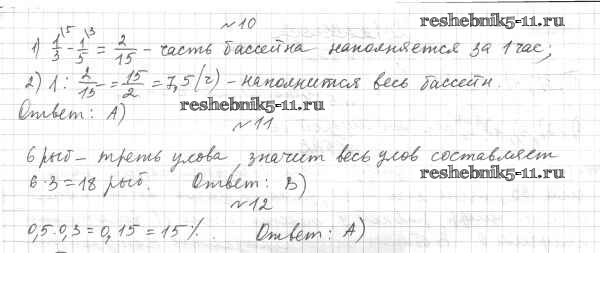 №10
reshebnik5-11.ru
1) 1/3 \5 - 1/5 \3 = 2/15 - часть бассейна наполняется за 1 час;
2) 1 : 2/15 = 15/2 = 7,5 (ч) - наполнится весь бассейн.
reshebnik5-11.ru
Ответ: А)
№11
6 рыб - треть улова, значит весь улов составляет
reshebnik5-11.ru
6·3=18 рыб. Ответ: В)
№12
0,5·0,3 = 0,15 = 15%. Ответ: А)